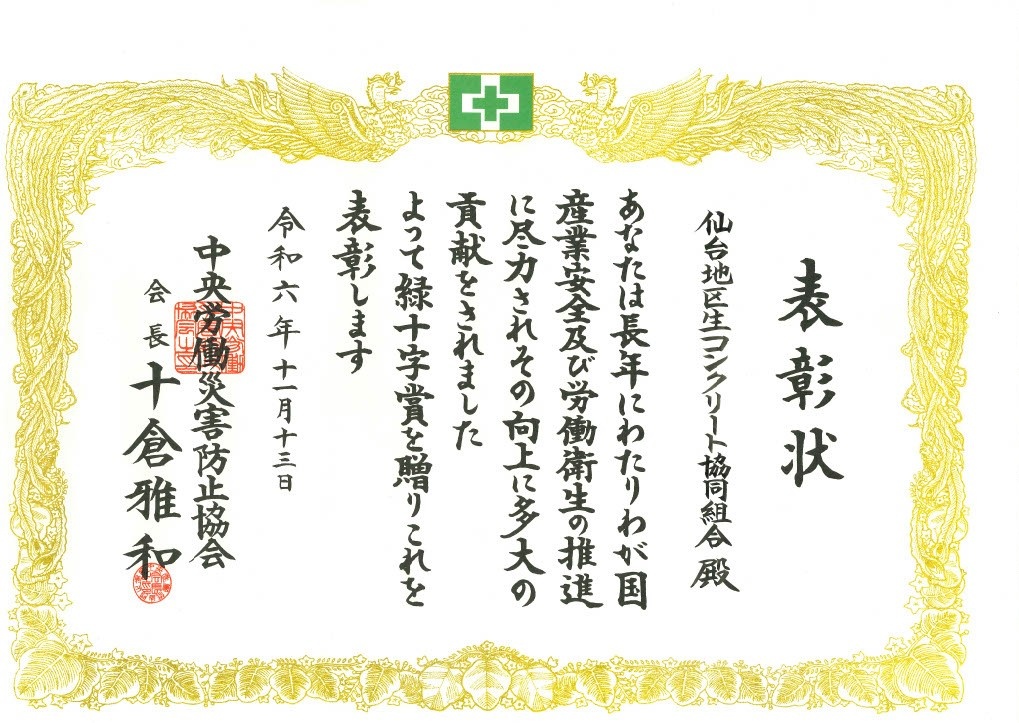 表彰状
仙台地区生コンクリート協同組合 殿
あなたは長年にわたりわが国
産業安全及び労働衛生の推進
に尽力されその向上に多大の
貢献をされました
よって緑十字賞を贈りこれを
表彰します
令和六年十一月十三日
中央労働災害防止協会
会長 十倉雅和